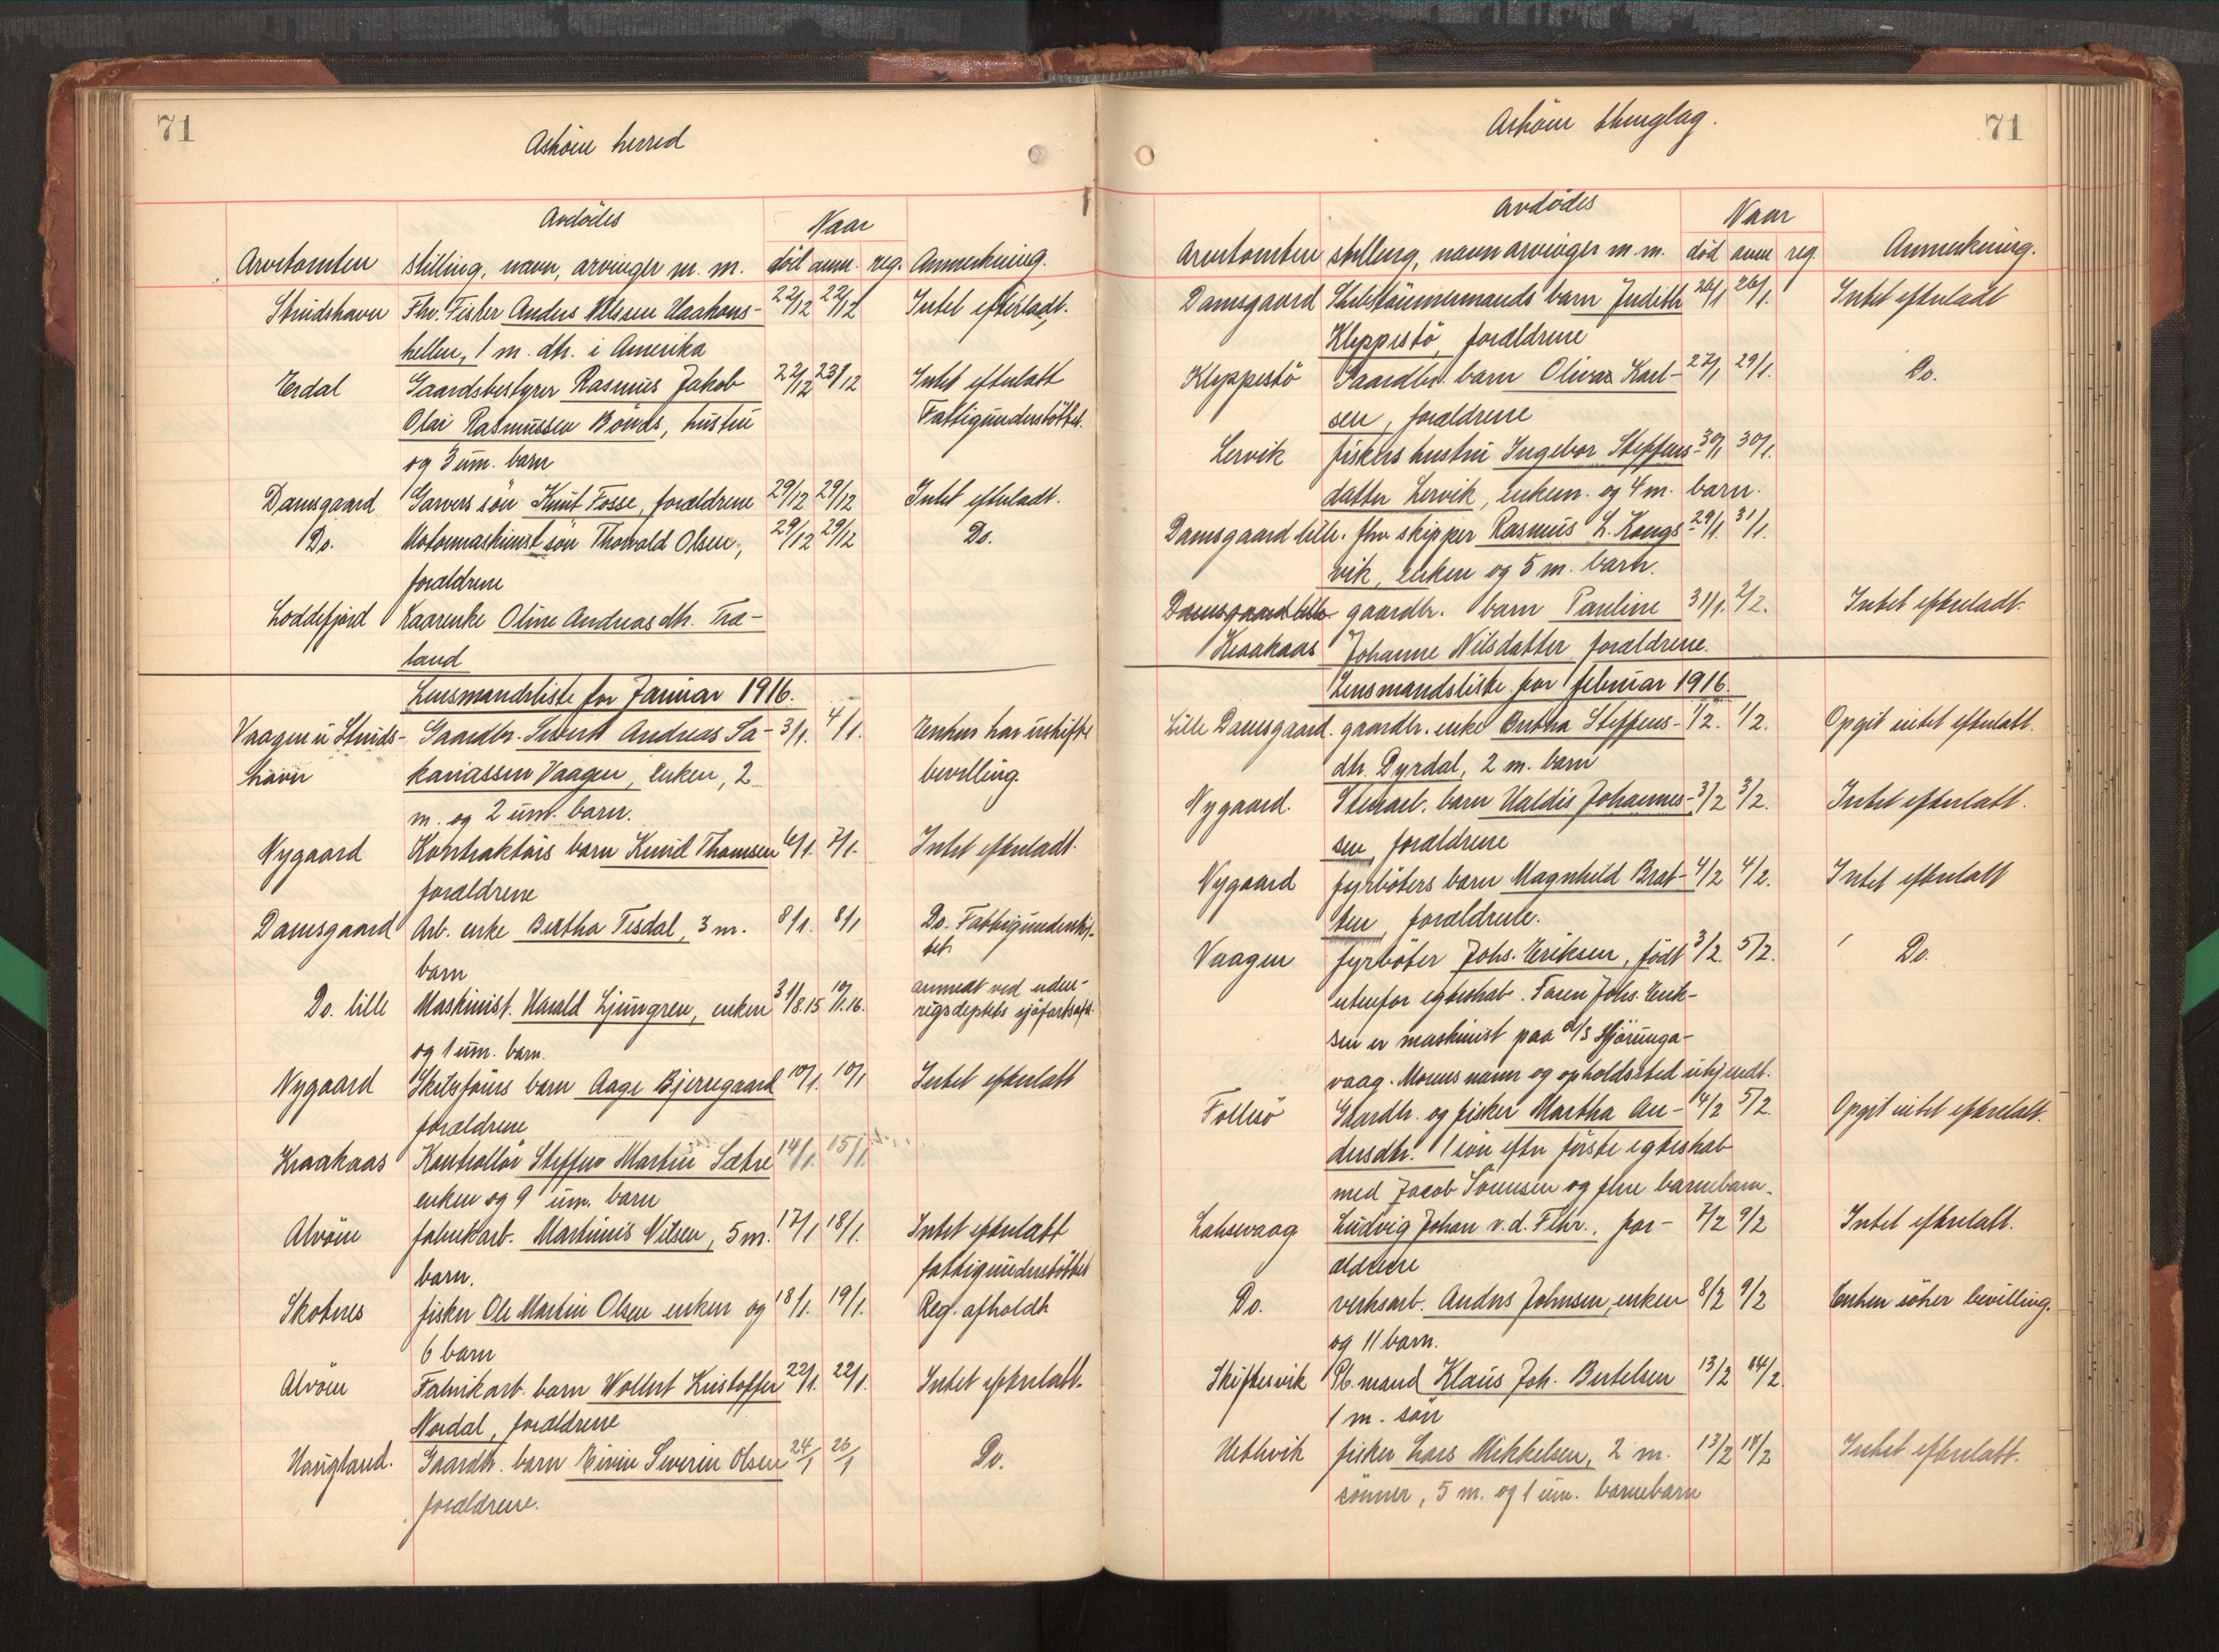 71
Askøen herred
Avdødes
Naar
Arvetomten stilling, navn, arvinger m. m. død anm. reg. Anmerkning.
Strudshavn Fhv. Fisker Anders Nilssen Haakons- 22/12 22/12 Intet efterladt.
hellen, 1 m. dtr. i Amerika
Erdal Gaardsbestyrer Rasmus Jakob 22/12 23/12 Intet efterlatt
Olai Rasmussen Bönds, hustru Fattigunderstöttet.
og 3 um. barn
Damsgaard Garvers sön Knut Fosse, forældrene 29/12 29/12 Intet efterladt.
Do. Motormaskinist sön Thorvald Olsen, 29/12 29/12 Do.
forældrene
Loddefjord Kaarenke Oline Andreasdtr. Træ-
land
Lensmandsliste for Januar 1916.
Vaagen u Struds- Gaardbr. Sivert Andreas Sa- 3/1. 4/1. Enken har uskifte
havn kariassen Vaagen, enken, 2 bevilling.
m. og 2 um. barn.
Nygaard Kontraktörs barn Knud Thomsen 6/1. 7/1. Intet efterladt.
forældrene
Damsgaard Arb. enke Bertha Tesdal, 3 m. 8/1. 8/1 Do. Fattigunderstöt-
barn tet.
Do. lille Maskinist. Harald Ljungren, enken 31/8.15 10/1.16. anmeldt ved uden-
og 1 um. barn. rigsdeptets sjöfartsafd.
Nygaard barn Aage Bjerregaard 10/1. 10/1 Intet efterlatt
forældrene
Kraakaas Kontrollör Steffen Martin Sætre 14/1. 15/1.
enken og 9 um. barn
Alvöen fabrikarb. Martinus Nilsen, 5 m. 17/1 18/1. Intet efterlatt
barn. fattigunderstöttet
Skotnes fisker Ole Martin Olsen enken og 18/1. 19/1. Reg. afholdt
6 barn
Alvöen Fabrikarb. barn Wollert Kristoffer 22/1. 22/1. Intet efterlatt.
Nordal, forældrene
Haugland. Gaardbr. barn Eivin Severin Olsen 24/1 26/1 Do.
forældrene.
71
Askøen thinglag.
Avdødes
Naar
Arvetomten stilling, navn arvinger m. m. død anm reg. Anmerkning.
Damsgaard Skibstömmermands barn Judith 26/1 26/1. Intet efterladt
Kleppestö, forældrene
Kleppestö Gaardbr. barn Olivar Karl- 27/1 29/1. Do.
sen, forældrene
Lervik fiskers hustru Ingebor Steffens- 30/1 30/1.
datter Lervik, enkem. og 4 m. barn.
Damsgaard lille. fhv skipper Rasmus L. Kongs- 29/1. 31/1.
vik, enken og 5 m. barn.
Damsgaard lille gaardbr. barn Pauline 31/1. 2/2. Intet efterladt.
Kraakaas Johanne Nilsdatter forældrene.
Lensmandsliste for februar 1916.
Lille Damsgaard. gaardbr. enke Bertha Steffens- 1/2. 1/2. Opgit intet efterlatt.
dtr. Dyrdal, 2 m. barn
Nygaard. Stenarb. barn Haldis Johannes- 3/2 3/2. Intet efterlatt.
sen, forældrene
Nygaard fyrböters barn Magnhild Brat- 4/2 4/2. Intet efterlatt
ten, forældrene.
Vaagen fyrböter Johs. Eriksen, födt 3/2. 5/2. Do.
utenfor egteskab. Faren Johs. Erik-
sen er maskinist paa d/s Hjörunga-
vaag. Morens navn og opholdssted ukjendt.
Follesö Gaardbr. og fisker Martha An- 4/2 5/2. Opgit intet efterlatt.
dersdtr. 1 sön efter förste egteskab
med Jacob Sörensen og flere barnebarn.
Laksevaag Ludvig Johan v.d. Fehr., for- 7/2 9/2 Intet efterlatt.
ældrene
Do. verksarb. Anders Johnsen, enken 8/2 9/2 Enken söker bevilling.
og 11 barn.
Skiftesvik Pb. mand Klaus Joh. Bertelsen 13/2 14/2.
1 m. sön
Hethvik fisker Lars Mikkelsen, 2 m. 13/2 14/2 Intet efterlatt.
sönner, 5 m. og 1 um. barnebarn